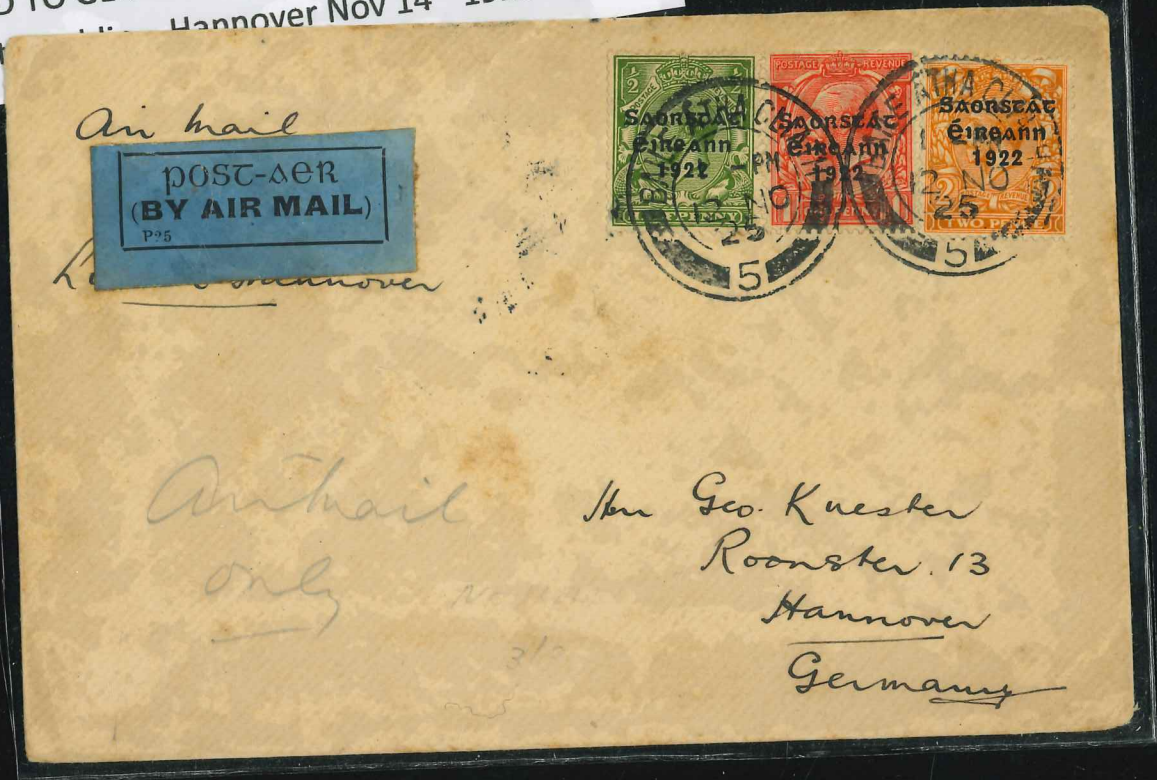 Hannover Nov 14
Air Mail
POST-AER
(BY AIR MAIL)
P25
Hannover
½ ½
POSTAGE
SAORSTÁT
ÉIREANN
1922
POSTAGE REVENUE
SAORSTÁT
ÉIREANN
1922
SAORSTÁT
ÉIREANN
1922
TWO PENCE
PM
12 NO
25
5
12 NO
25
5
Airmail
only
Herr Geo. Kuester
Roonster. 13
Hannover
Germany